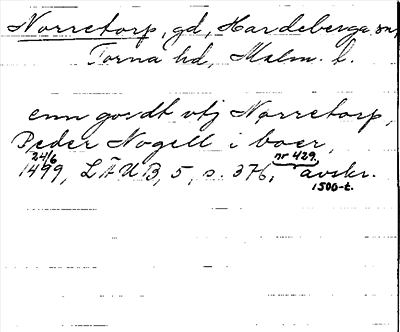 Norretorp, gd, Hardeberga sn,
Torna hd, Malm. l.
enn gordt vtj Norretorp,
Peder Nogell i boer,
24/6 1499, LÄUB, 5, s. 376, nr 429, avskr.
1500-t.